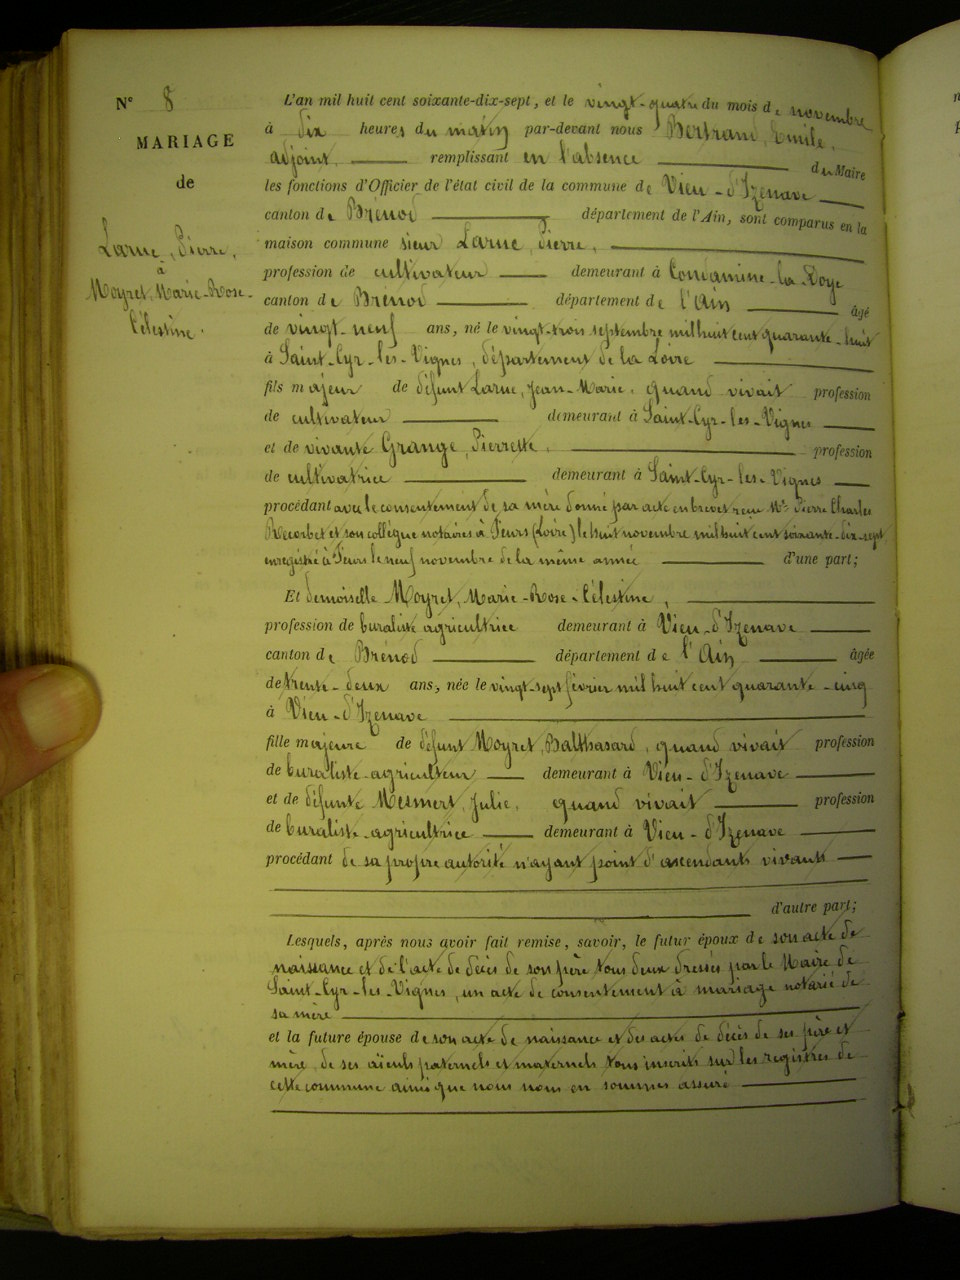 N° 8
MARIAGE
de
Larue, Pierre,
à
Moyret, Marie-Rose-
Célestine.
L'an mil huit cent soixante-dix-sept, et le vingt-quatre du mois de novembre
à dix heures du matin par-devant nous Bertrand, Emile,
adjoint, remplissant en l'absence du Maire
les fonctions d'Officier de l'état civil de la commune de Vieu-d'Izenave
canton de Brénod département de l'Ain, sont comparus en la
maison commune sieur Larue, Pierre,
profession de cultivateur demeurant à Condamine-la-Doye
canton de Brénod département de l'Ain âgé
de vingt-neuf ans, né le vingt-trois septembre mil huit cent quarante-huit
à Saint-Cyr-les-Vignes, département de la Loire
fils majeur de défunt Larue, Jean-Marie, quand vivait profession
de cultivateur demeurant à Saint-Cyr-les-Vignes
et de vivante Grange, Pierrette, profession
de cultivatrice demeurant à Saint-Cyr-les-Vignes
procédant avec le consentement de sa mère donné par acte en brevet reçu Me Pierre Charles
et son collègue notaires à Feurs (Loire) le huit novembre mil huit cent soixante-dix-sept
enregistré à Feurs le neuf novembre de la même année d'une part;
Et demoiselle Moyret, Marie-Rose-Célestine,
profession de buraliste agricultrice demeurant à Vieu-d'Izenave
canton de Brénod département de l'Ain âgée
de trente-deux ans, née le vingt-sept février mil huit cent quarante-cinq
à Vieu-d'Izenave
fille majeure de défunt Moyret, Balthasard, quand vivait profession
de buraliste-agriculteur demeurant à Vieu-d'Izenave
et de défunte Mermert, Julie, quand vivait profession
de buraliste-agricultrice demeurant à Vieu-d'Izenave
procédant de sa propre autorité n'ayant point d'ascendants vivants
d'autre part;
Lesquels, après nous avoir fait remise, savoir, le futur époux de son acte de
naissance et de l'acte de décès de son père tous deux dressés par le Maire de
Saint-Cyr-les-Vignes, un acte de consentement à mariage notarié de
sa mère
et la future épouse de son acte de naissance et des actes de décès de ses père et
mère, de ses aïeuls paternels et maternels tous inscrits sur les registres de
cette commune ainsi que nous nous en sommes assuré